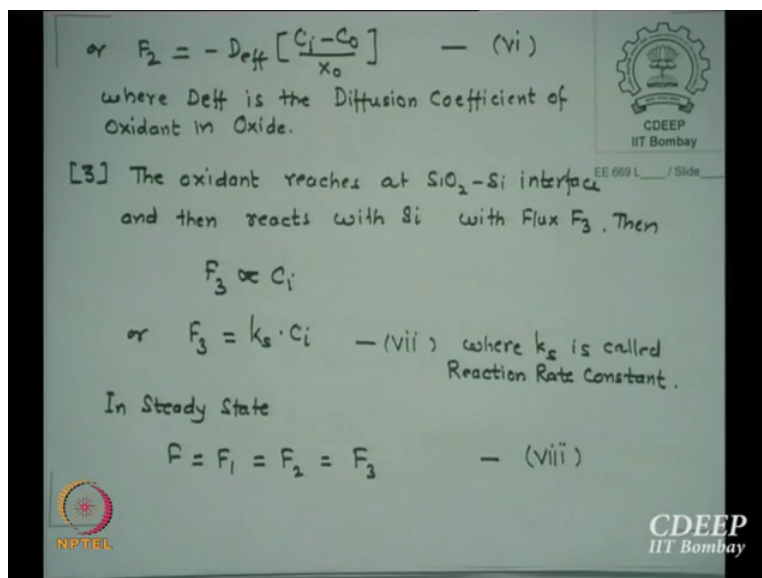 or F₂ = - Deff [ (Ci - C0) / x0 ] — (vi)
where Deff is the Diffusion Coefficient of
Oxidant in Oxide.
CDEEP
IIT Bombay
EE 669 L___ / Slide___
[3] The oxidant reaches at SiO₂-Si interface
and then reacts with Si with Flux F₃. Then
F₃ ∝ Ci
or F₃ = ks · Ci — (vii) where ks is called
Reaction Rate Constant.
In Steady State
F = F₁ = F₂ = F₃ — (viii)
NPTEL
CDEEP
IIT Bombay